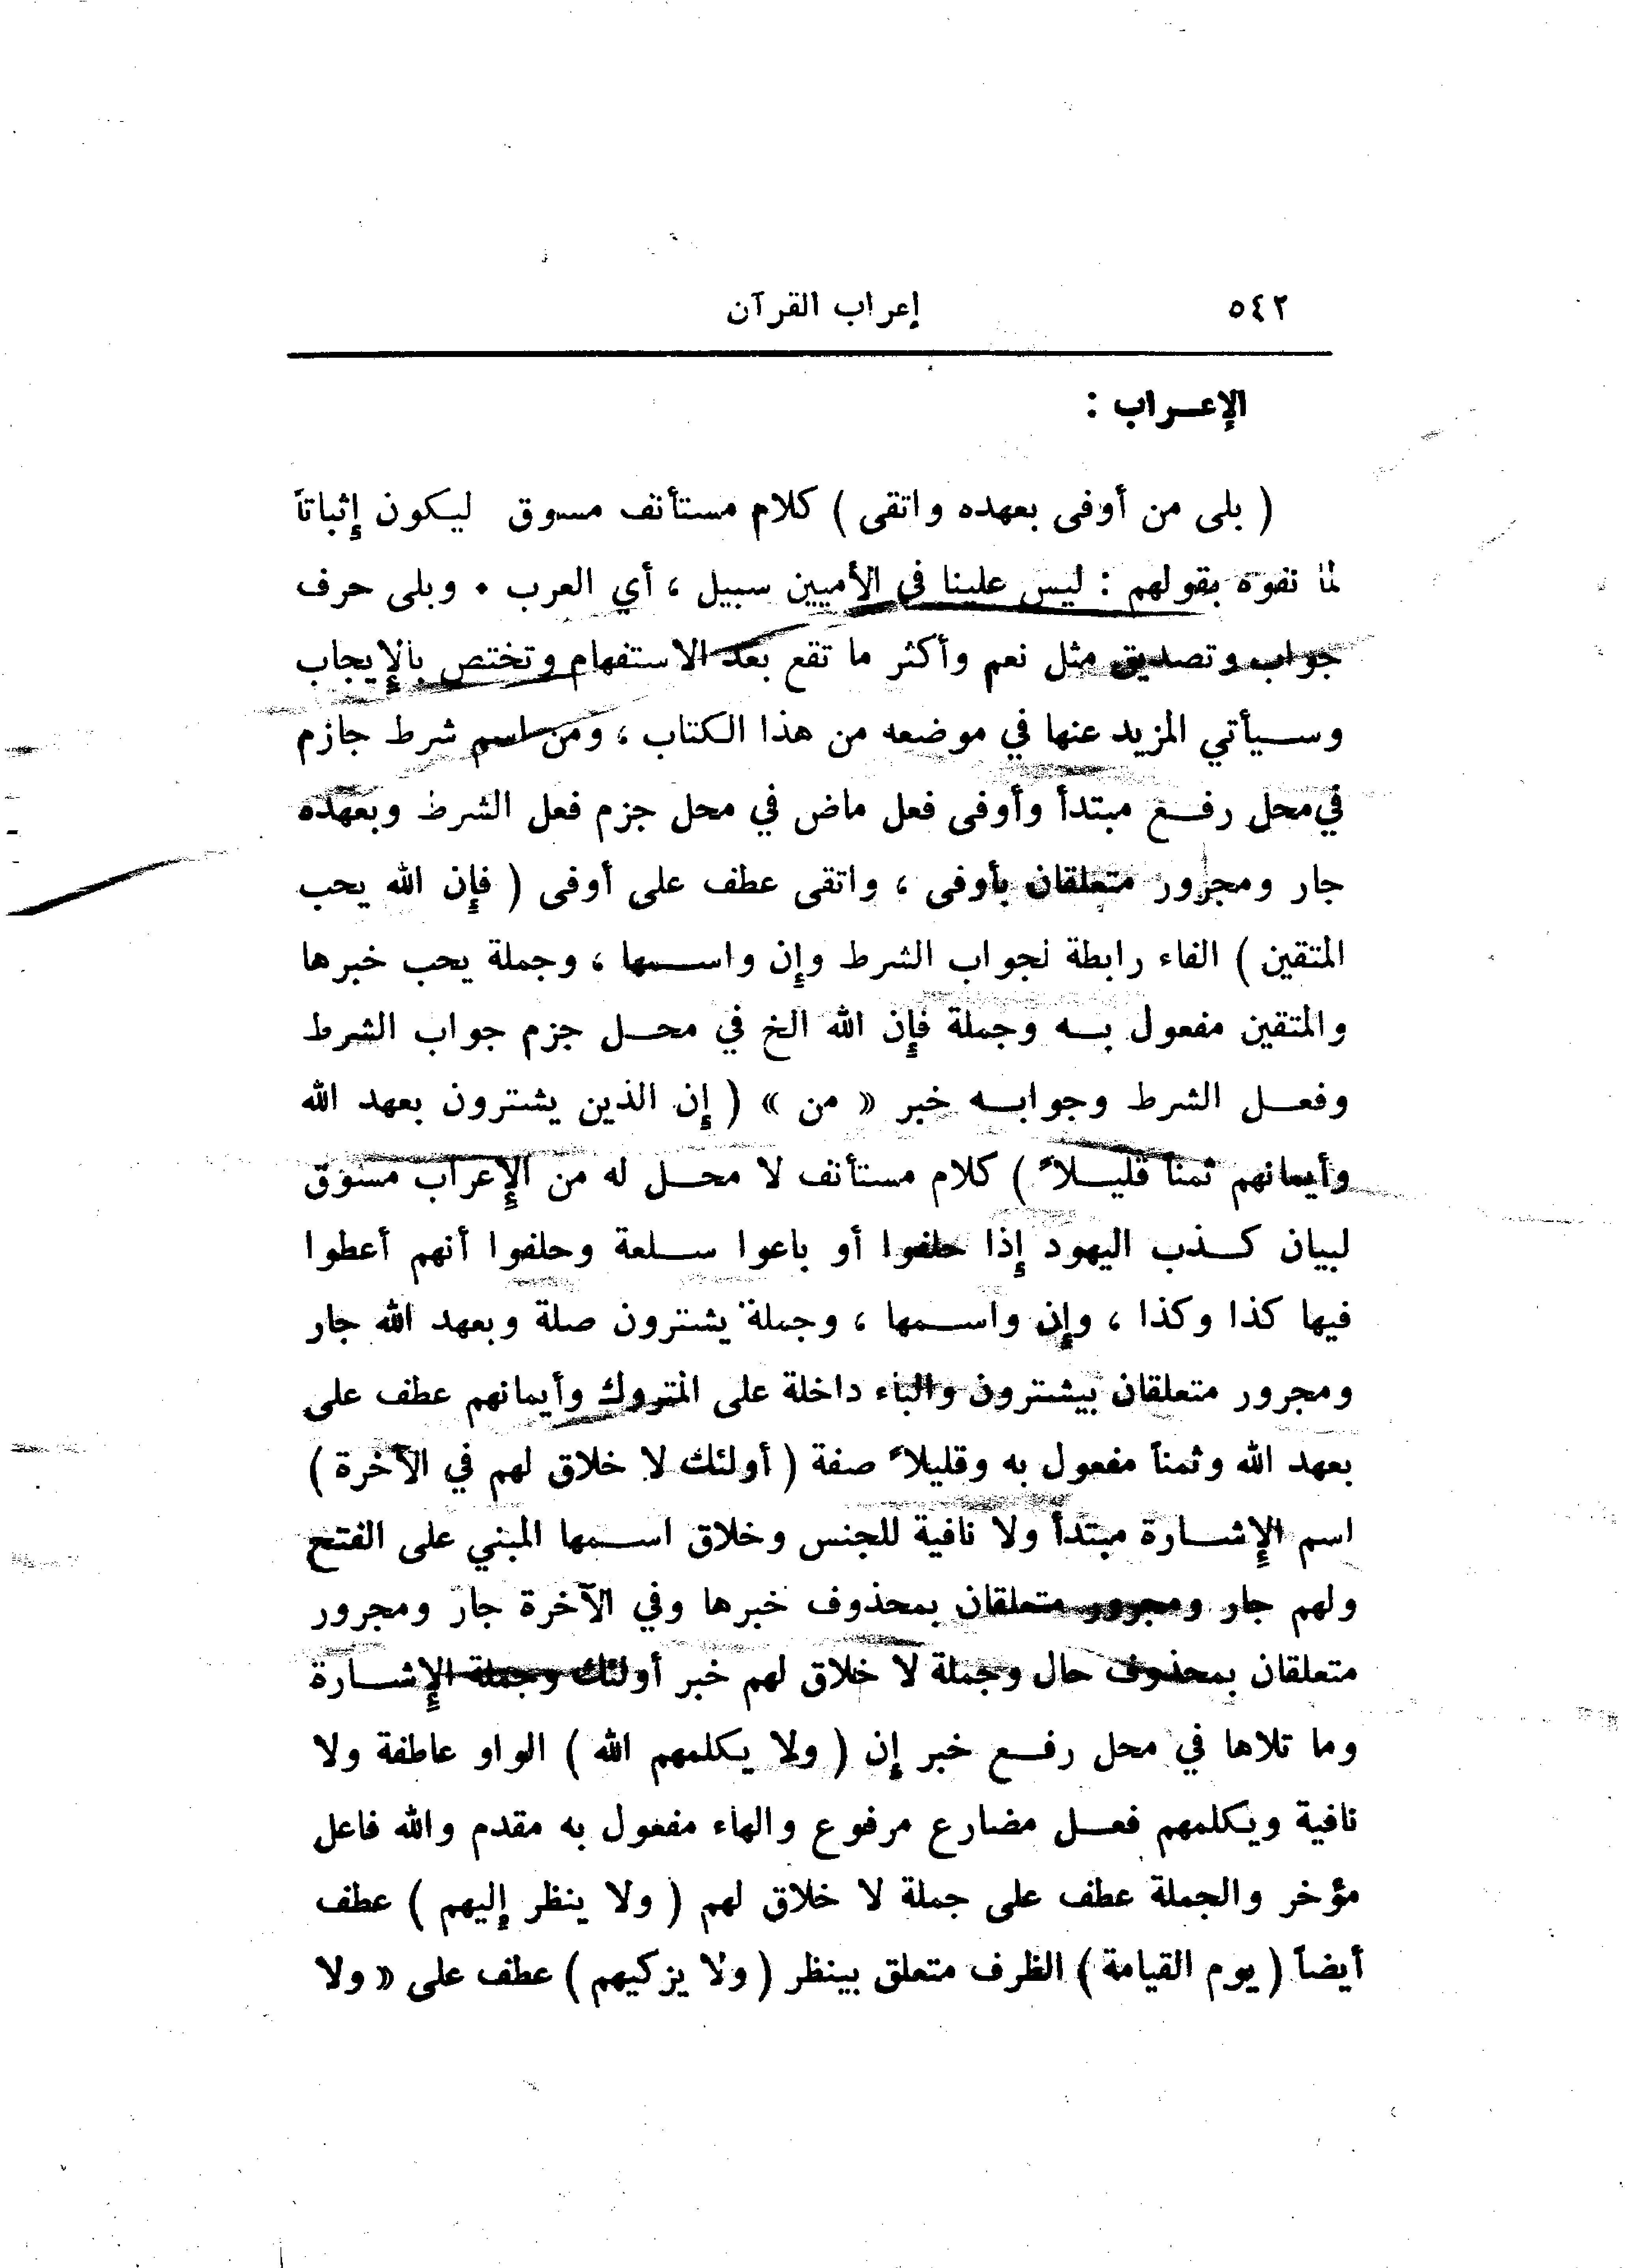 ٥٤٢ إعراب القرآن
الإعـراب :
( بلى من أوفى بعهده واتقى ) كلام مستأنف مسوق ليكون إثباتاً
لما نفوه بقولهم : ليس علينا في الأميين سبيل ، أي العرب . وبلى حرف
جواب وتصديق مثل نعم وأكثر ما تقع بعد الاستفهام وتختص بالإيجاب
وسيأتي المزيد عنها في موضعه من هذا الكتاب ، ومن اسم شرط جازم
في محل رفع مبتدأ وأوفى فعل ماض في محل جزم فعل الشرط وبعهده
جار ومجرور متعلقان بأوفى ، واتقى عطف على أوفى ( فإن الله يحب
المتقين ) الفاء رابطة لجواب الشرط وإن واسمها ، وجملة يحب خبرها
والمتقين مفعول به وجملة فإن الله الخ في محل جزم جواب الشرط
وفعل الشرط وجوابه خبر « من » ( إن الذين يشترون بعهد الله
وأيمانهم ثمناً قليلاً ) كلام مستأنف لا محل له من الإعراب مسوق
لبيان كذب اليهود إذا حلفوا أو باعوا سلعة وحلفوا أنهم أعطوا
فيها كذا وكذا ، وإن واسمها ، وجملة يشترون صلة وبعهد الله جار
ومجرور متعلقان بيشترون والباء داخلة على المتروك وأيمانهم عطف على
بعهد الله وثمناً مفعول به وقليلاً صفة ( أولئك لا خلاق لهم في الآخرة )
اسم الإشارة مبتدأ ولا نافية للجنس وخلاق اسمها المبني على الفتح
ولهم جار ومجرور متعلقان بمحذوف خبرها وفي الآخرة جار ومجرور
متعلقان بمحذوف حال وجملة لا خلاق لهم خبر أولئك وجملة الإشارة
وما تلاها في محل رفع خبر إن ( ولا يكلمهم الله ) الواو عاطفة ولا
نافية ويكلمهم فعل مضارع مرفوع والهاء مفعول به مقدم والله فاعل
مؤخر والجملة عطف على جملة لا خلاق لهم ( ولا ينظر إليهم ) عطف
أيضاً ( يوم القيامة ) الظرف متعلق بينظر ( ولا يزكيهم ) عطف على « ولا